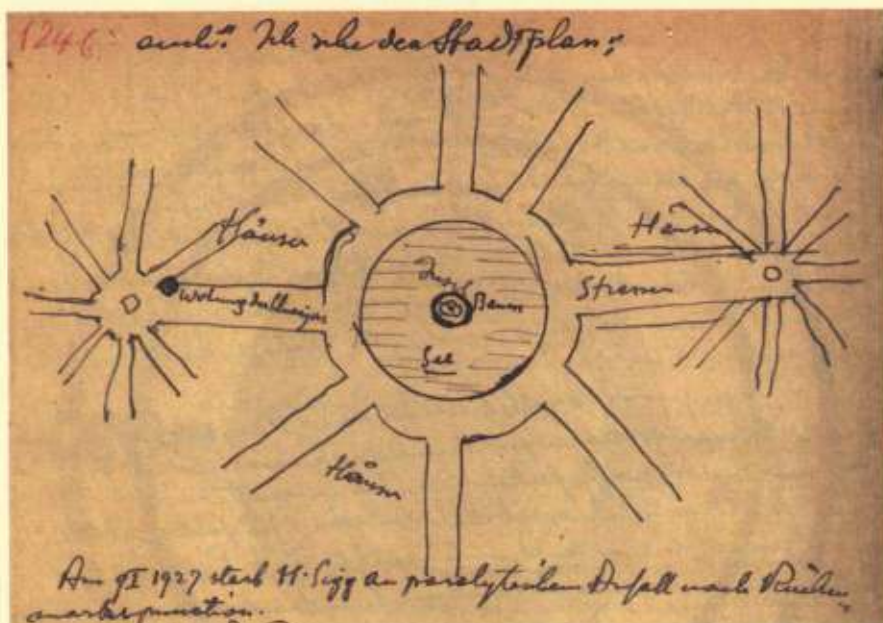 1246 auch: Ich sehe den Stadtplan:
Häuser
Häuser
Wohnung des Schweizers
Strassen
Insel
Baum
See
Häuser
Am 9 I 1927 starb H. Sigg an paralytischem Anfall nach Rücken-
markspunction.